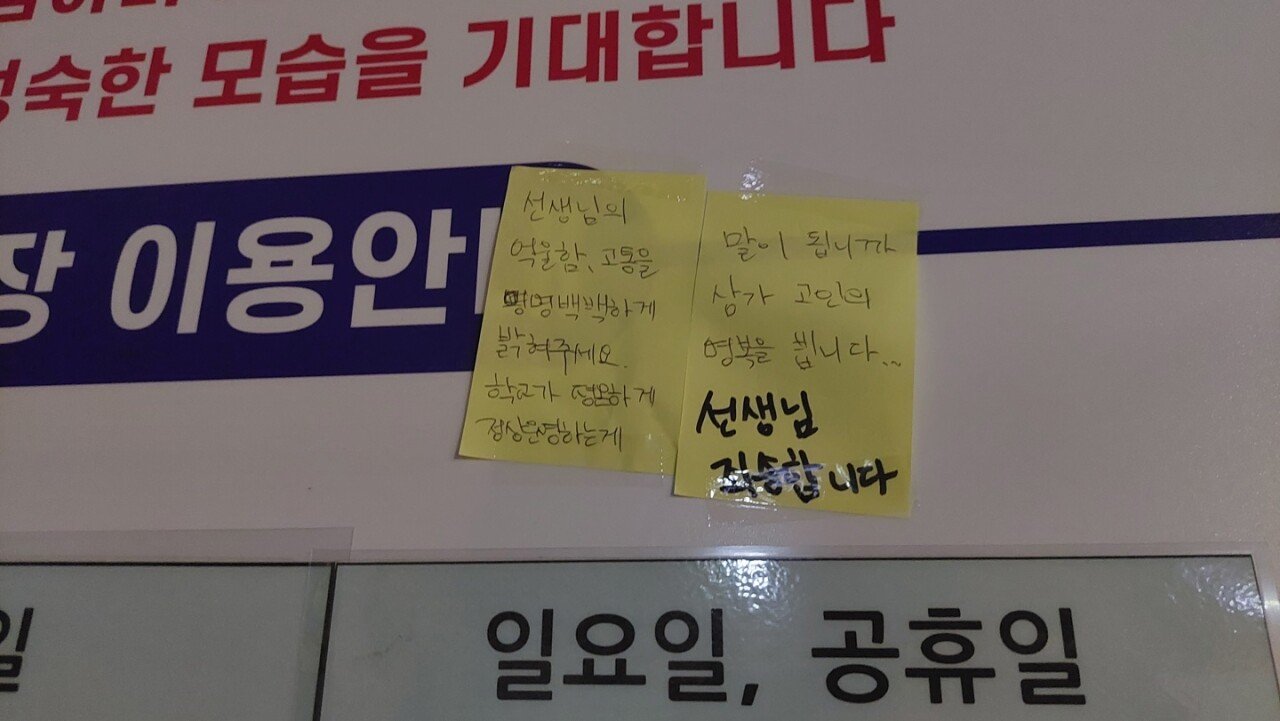 숙한 모습을 기대합니다
장 이용안
선생님의
억울함, 고통을
명명백백하게
밝혀주세요.
학교가 평온하게
정상운영하는게
말이 됩니까
삼가 고인의
명복을 빕니다...
선생님
죄송합니다
일
일요일, 공휴일